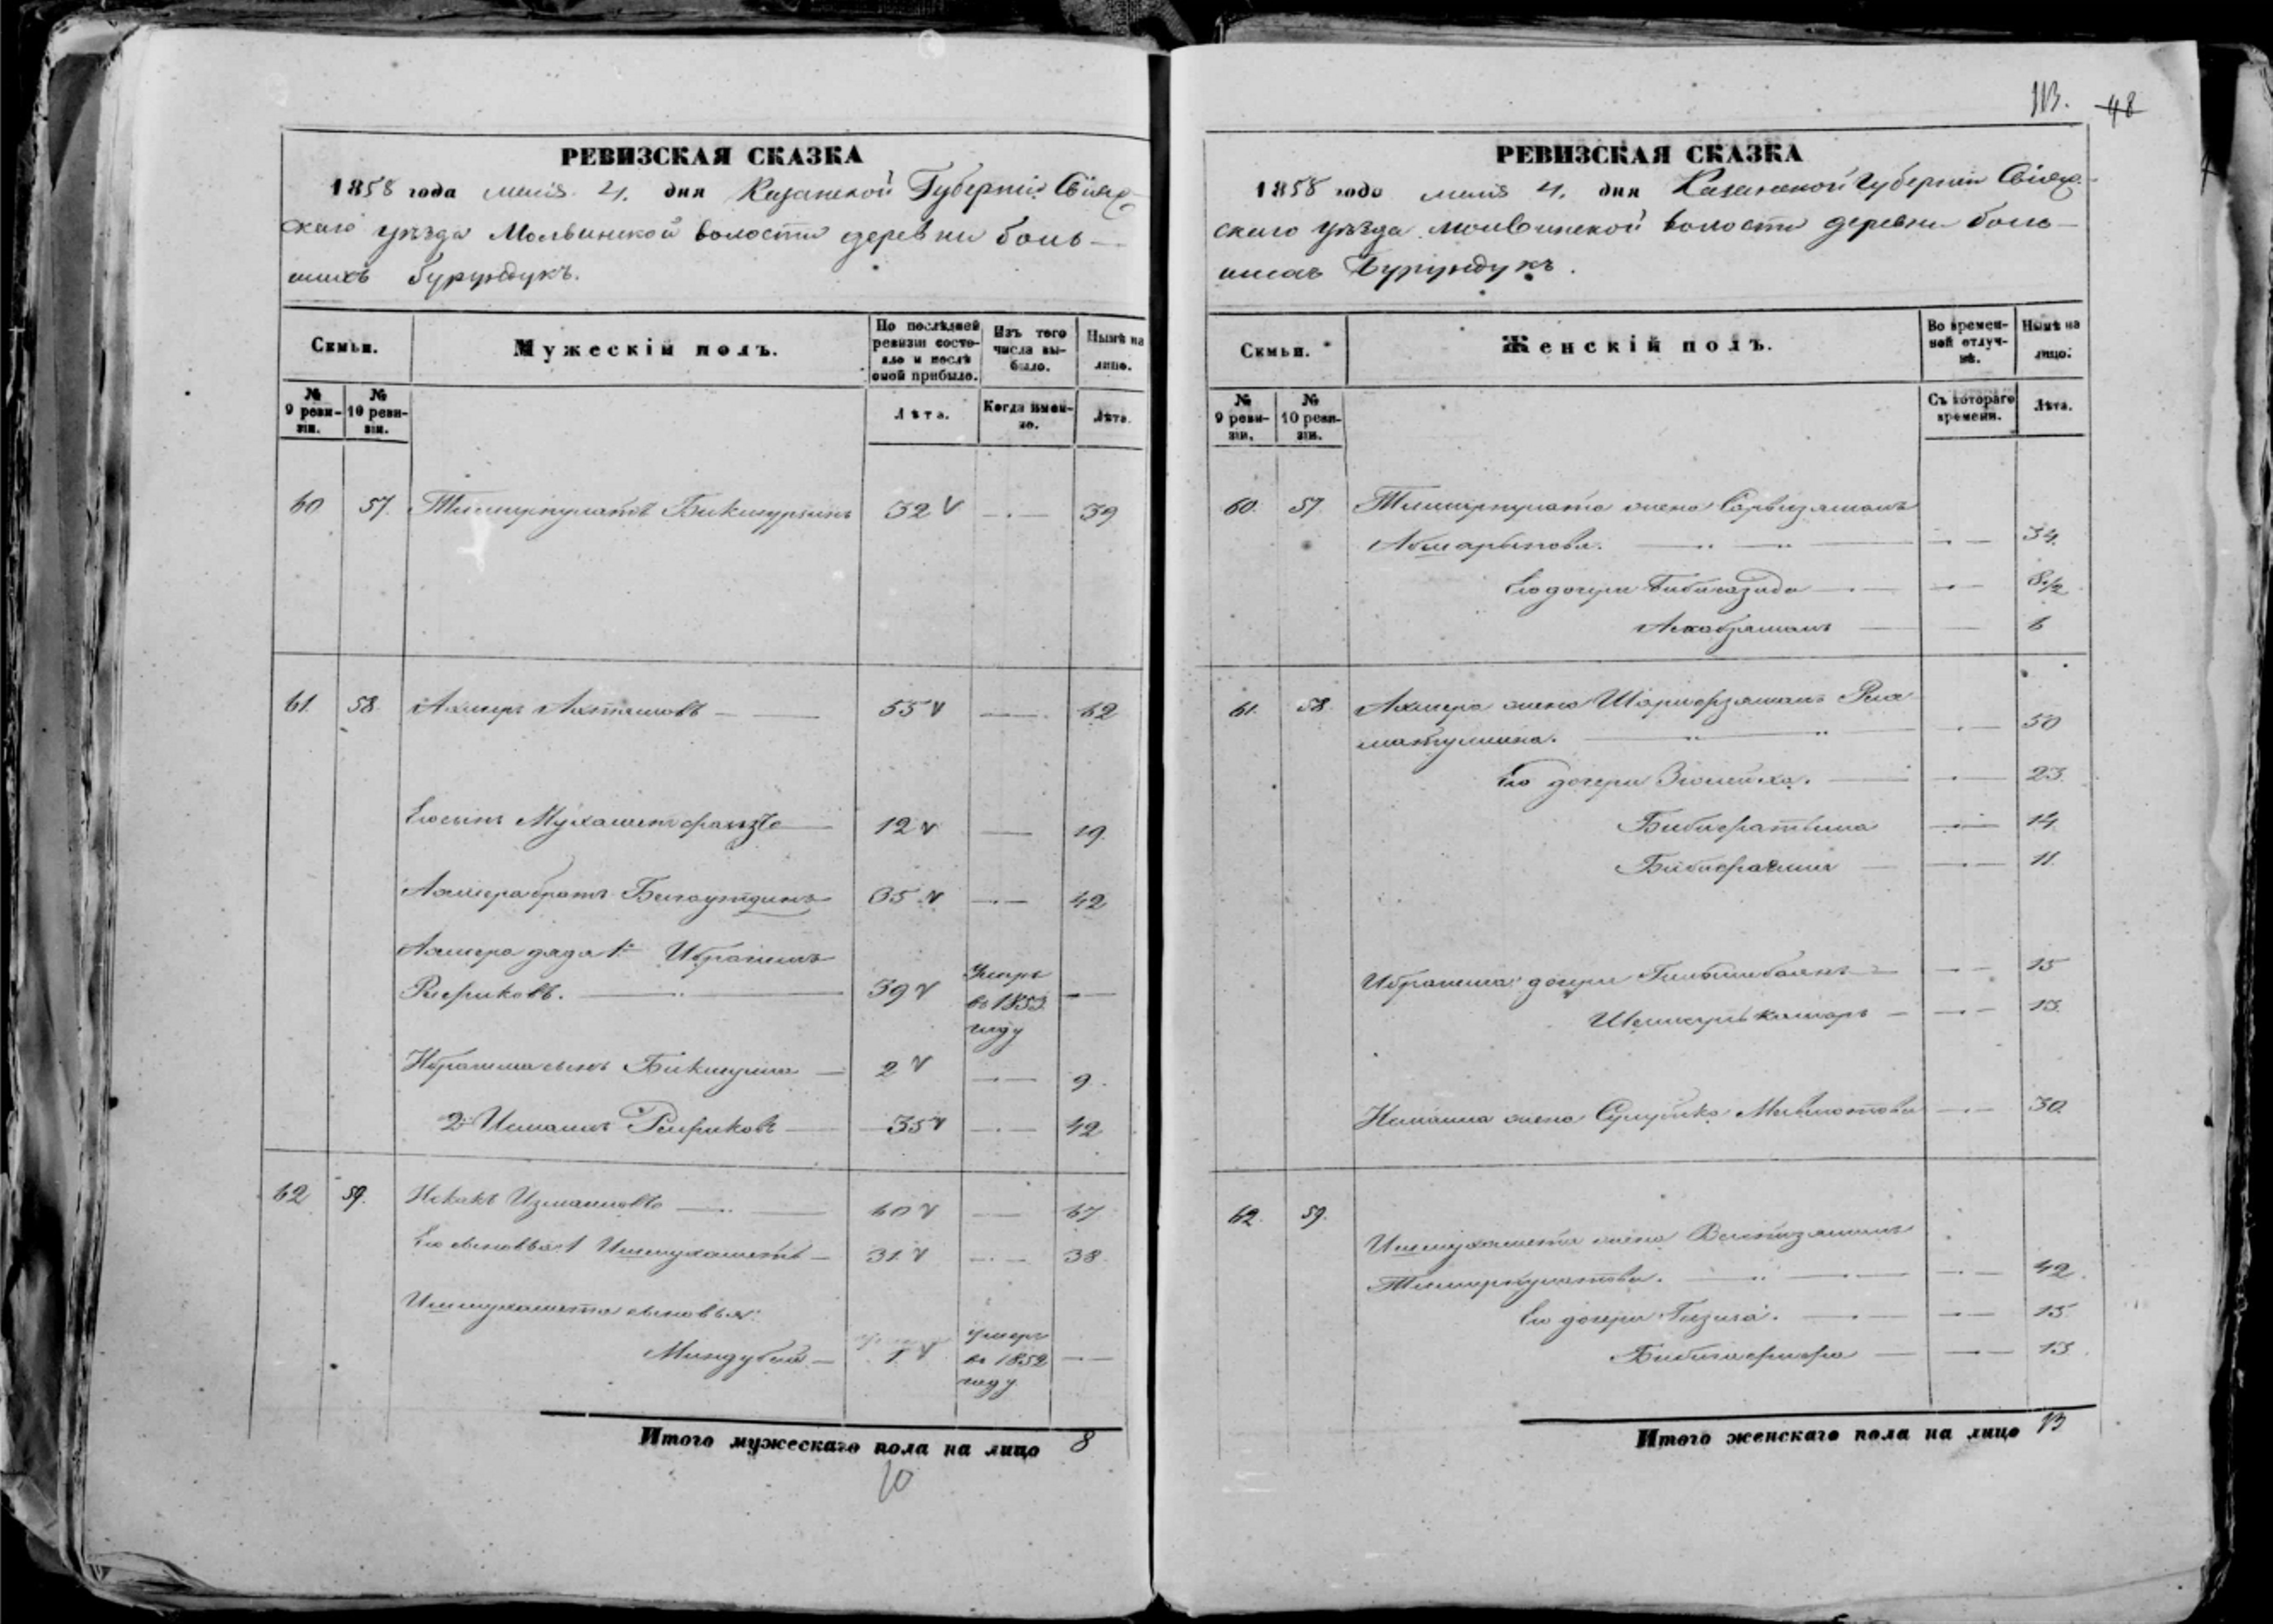 РЕВИЗСКАЯ СКАЗКА
1858 года маія 4. дня Казанской Губерніи Свіяж-
скаго уѣзда Мольвинской волости деревни боль-
шихъ бурундукъ.
Семьи.
Мужескій полъ.
По послѣдней ревизіи состо-
яло и послѣ оной прибыло.
Изъ того числа вы-
было.
Нынѣ на лицо.
№ 9 реви-
зіи.
№ 10 реви-
зіи.
Лѣта.
Когда имен-
но.
Лѣта.
60 57. Темирпулатъ Бикмурзинъ 32 39
61. 58. Ахмеръ Ахтямовъ 55 62
Его сынъ Мухаметфаизъ 12 19.
Ахмера братъ Багаутдинъ 35 42
Ахмера дядя 1й Ибрагимъ
Рафиковъ. 39 Умеръ въ 1853 году
Ибрагима сынъ Бикмурза 2 9.
2й Исмаилъ Рафиковъ 35 42
62 59. Исхакъ Измаиловъ 60 67
Его сыновья 1 Ишмухаметъ 31 38
Ишмухамета сыновья:
Миндубай 1. умеръ въ 1852 году
Итого мужескаго пола на лицо 8
10
113. 48
РЕВИЗСКАЯ СКАЗКА
1858 года маія 4. дня Казанской Губерніи Свіяж-
скаго уѣзда Мольвинской волости деревни боль-
шихъ Бурундукъ.
Семьи.
Женскій полъ.
Во времен-
ной отлуч-
кѣ.
Нынѣ на лицо.
№ 9 реви-
зіи.
№ 10 реви-
зіи.
Съ котораго времени.
Лѣта.
60. 57. Темирпулата жена
34.
Его дочери 8 1/2
6
61. 58. Ахмера жена Шарифзямалъ Рах-
матуллина. 50
Его дочери Зюлейха. 23.
Бибифатыма 14
11.
Ибрагима дочери 15
13.
жена 30.
62. 59.
Ишмухамета жена
Темирпулатова. 42.
Его дочери Газиза. 15.
13.
Итого женскаго пола на лицо 13